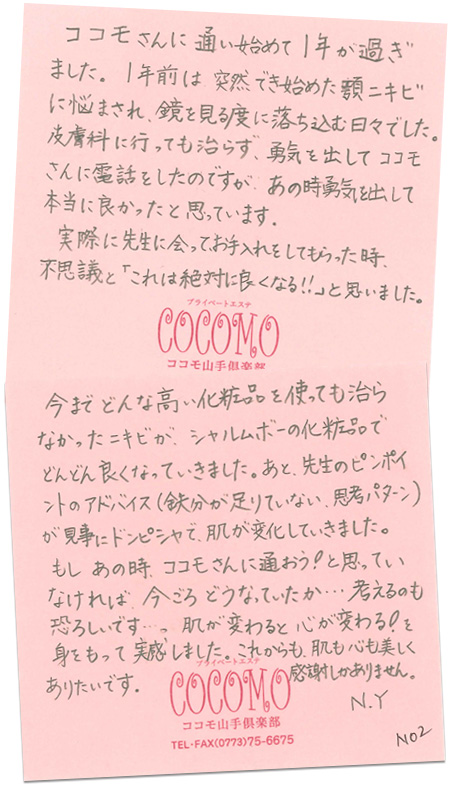 ココモさんに通い始めて1年が過ぎ
ました。1年前は突然でき始めた顎ニキビ
に悩まされ、鏡を見る度に落ち込む日々でした。
皮膚科に行っても治らず、勇気を出してココモ
さんに電話をしたのですが、あの時勇気を出して
本当に良かったと思っています。
実際に先生に会ってお手入れをしてもらった時、
不思議と「これは絶対に良くなる!!」と思いました。
プライベートエステ
COCOMO
ココモ山手倶楽部
今までどんな高い化粧品を使っても治ら
なかったニキビが、シャルムボーの化粧品で
どんどん良くなっていきました。あと、先生のピンポイ
ントのアドバイス(鉄分が足りていない、思考パターン)
が見事にドンピシャで、肌が変化していきました。
もしあの時、ココモさんに通おう!と思ってい
なければ、今ごろどうなっていたか…考えるのも
恐ろしいです…っ 肌が変わると心が変わる!を
身をもって実感しました。これからも、肌も心も美しく
ありたいです。
感謝しかありません。
プライベートエステ
COCOMO
ココモ山手倶楽部
TEL・FAX(0773)75-6675
N.Y
NO2